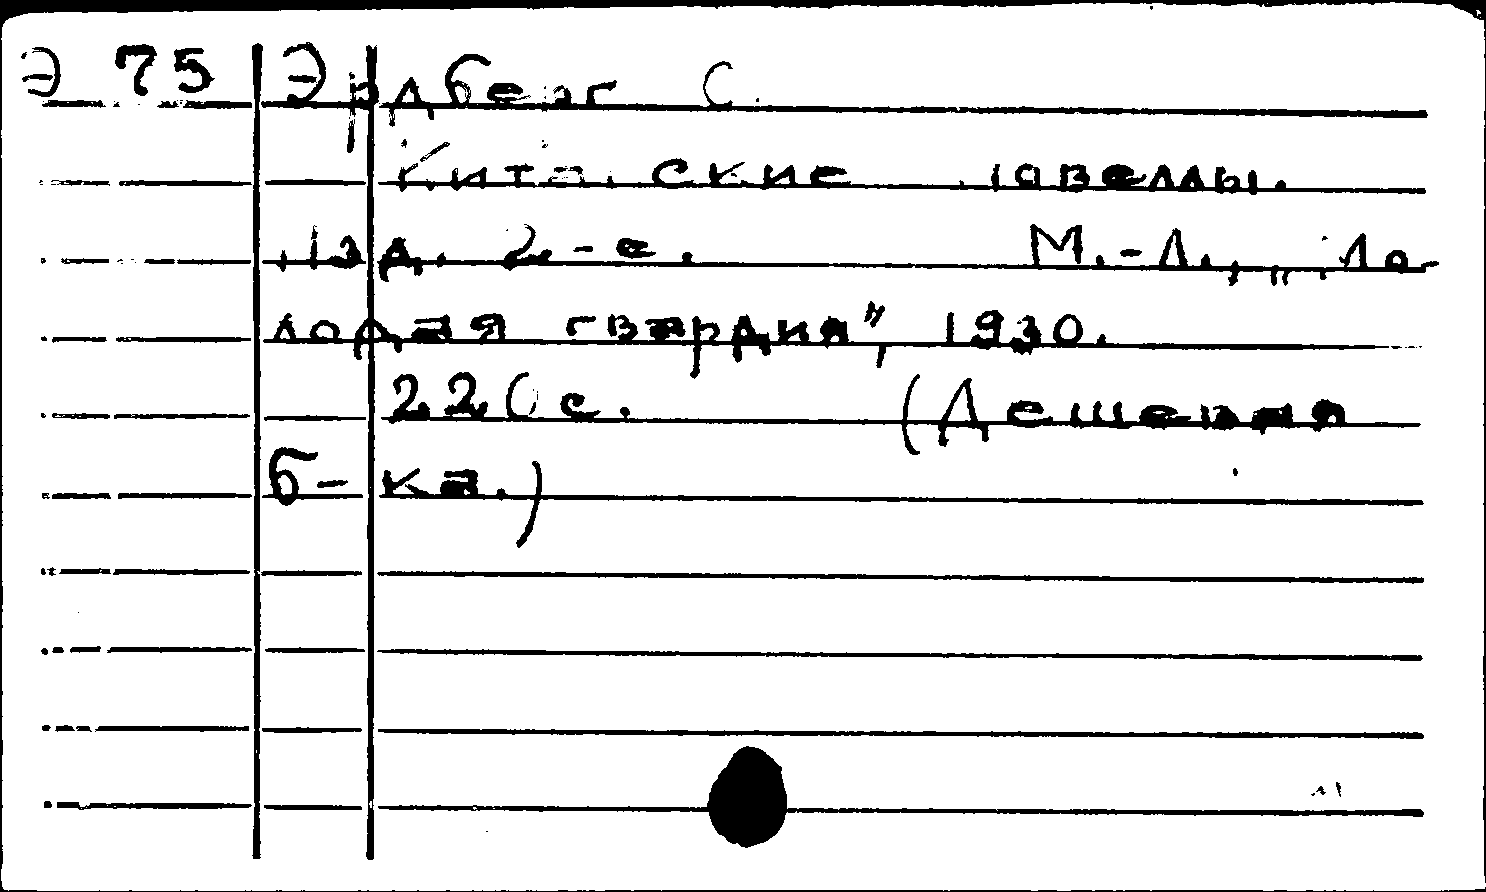 Э 75 Эрдберг С.
Китайские новеллы.
Изд. 2-е. М.-Л., „Мо-
лодая гвардия", 1930.
220 с. (Дешевая
б-ка.)